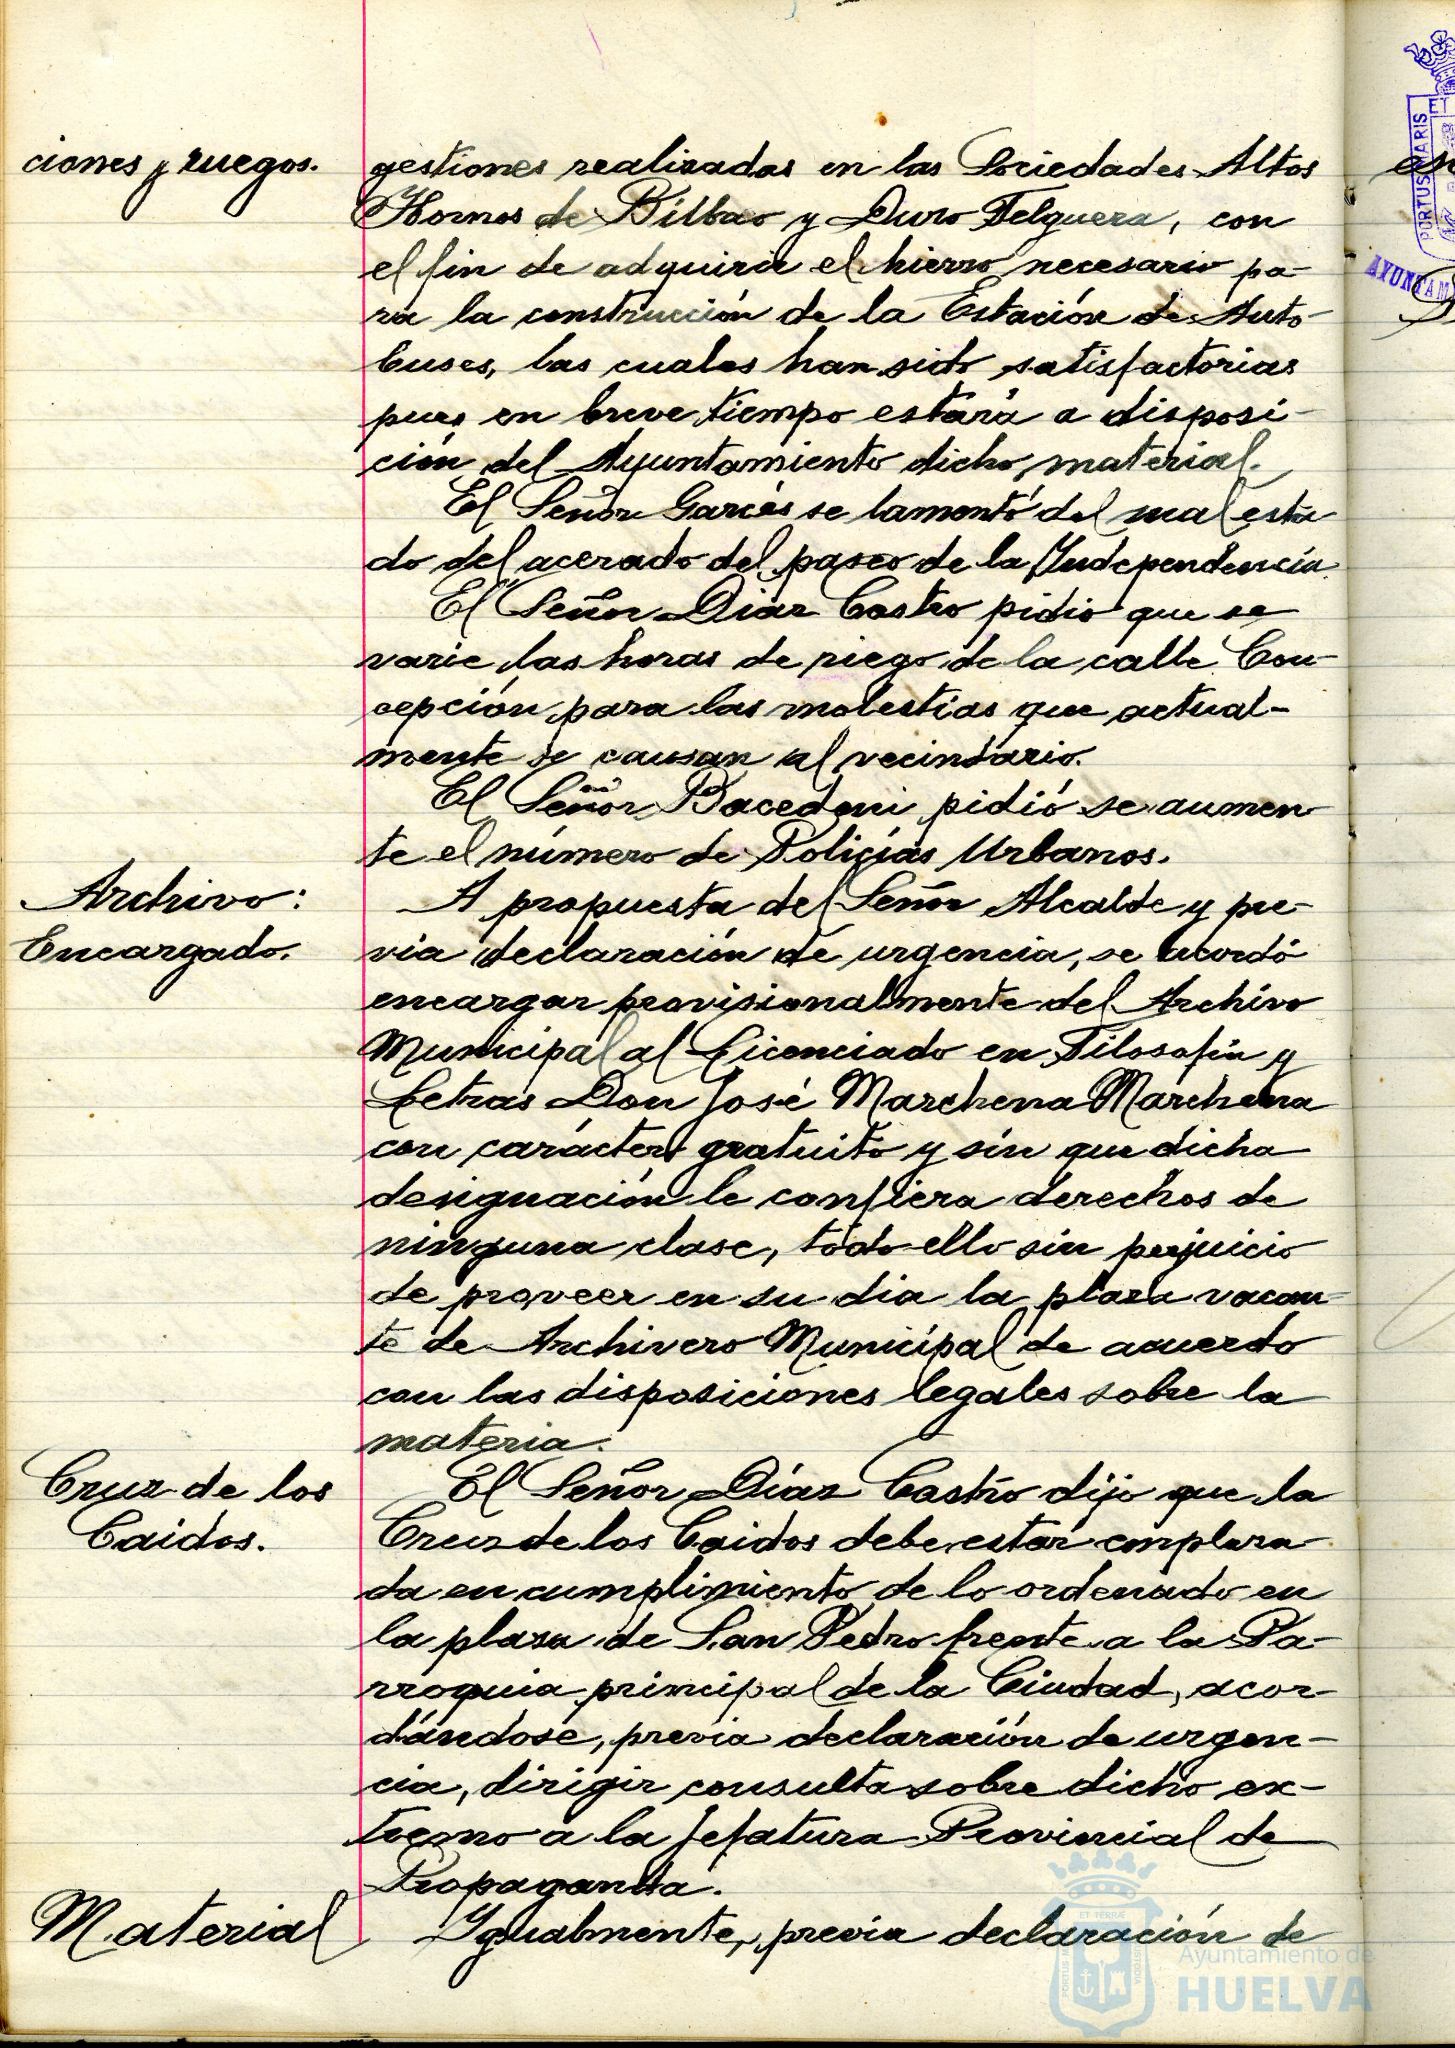 ciones y ruegos.
gestiones realizadas en las Sociedades Altos
Hornos de Bilbao y Duro Felguera, con
el fin de adquirir el hierro necesario pa-
ra la construcción de la Estación de Auto-
buses, las cuales han sido satisfactorias
pues en breve tiempo estará a disposi-
ción del Ayuntamiento dicho material.
El Señor Garcés se lamentó del mal esta-
do del acerado del paseo de la Independencia.
El Señor Diaz Castro pidió que se
varie las horas de riego de la calle Con-
cepción para las molestias que actual-
mente se causan al vecindario.
El Señor Bacedoni pidió se aumen-
te el número de Policías Urbanos.
Archivo:
Encargado.
A propuesta del Señor Alcalde y pre-
via declaración de urgencia, se acordó
encargar provisionalmente del Archivo
Municipal al Licenciado en Filosofía y
Letras Don José Marchena Marchena
con carácter gratuito y sin que dicha
designación le confiera derechos de
ninguna clase, todo ello sin perjuicio
de proveer en su dia la plaza vacan-
te de Archivero Municipal de acuerdo
con las disposiciones legales sobre la
materia.
Cruz de los
Caidos.
El Señor Díaz Castro dijo que la
Cruz de los Caidos debe estar emplaza
da en cumplimiento de lo ordenado en
la plaza de San Pedro frente a la Pa-
rroquia principal de la Ciudad, acor-
dándose, previa declaración de urgen-
cia, dirigir consulta sobre dicho ex-
tremo a la Jefatura Provincial de
Propaganda.
Material
Igualmente, previa declaración de
Ayuntamiento de
HUELVA